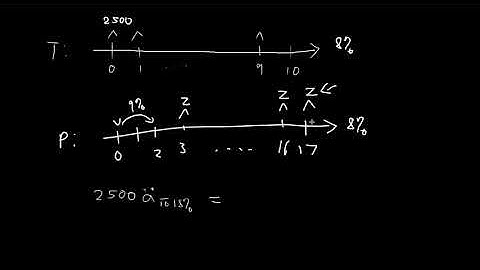 2500
T: 8%
0 1 .. 9 10
9% z z z
P: 8%
0 2 3 .... 16 17
2500 ä 10 8% =